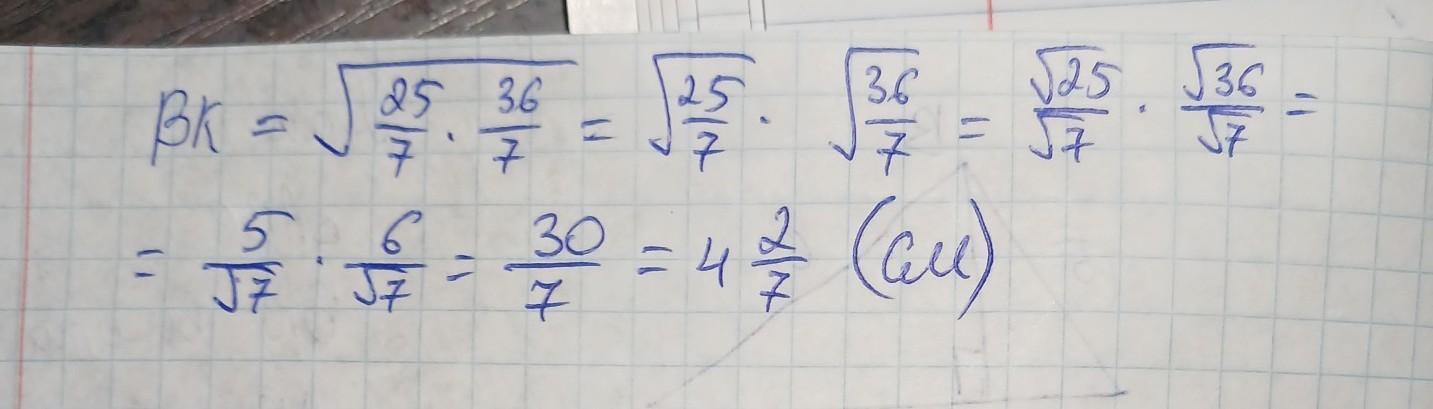 BK = √(25/7 · 36/7) = √(25/7) · √(36/7) = √25/√7 · √36/√7 =
= 5/√7 · 6/√7 = 30/7 = 4 2/7 (см)